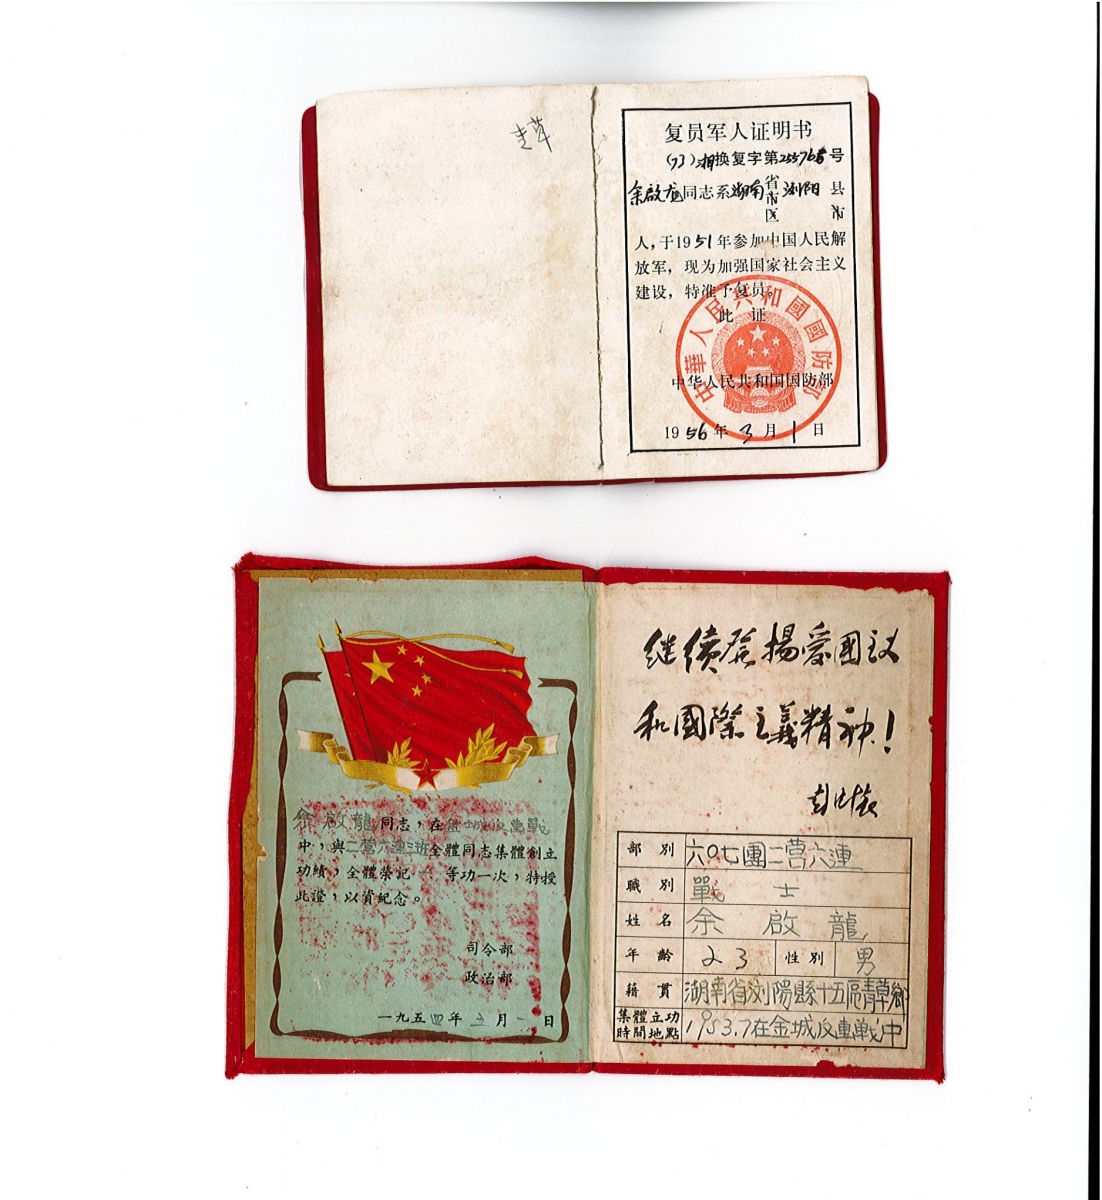 复员军人证明书
(73)湘换复字第255765号
余啟龙同志系湖南省市区浏阳县市
人，于1951年参加中国人民解
放军，现为加强国家社会主义
建设，特准予复员。
此证
中華人民共和國國防部
中华人民共和国国防部
1956年3月1日
余啟龍同志，在金城反車戰
中，與二营六連三班全體同志集體創立
功績，全體榮記一等功一次，特授
此證，以資紀念。
司令部
政治部
一九五四年 月一日
继續发揚爱國主义
和國際主義精神！
彭德怀
部別 六〇七團二营六連
職別 戰士
姓名 余啟龍
年齡 23 性別 男
籍貫 湖南省浏陽縣十五區青草鄉
集體立功
時間地點 1953.7在金城反車戰中